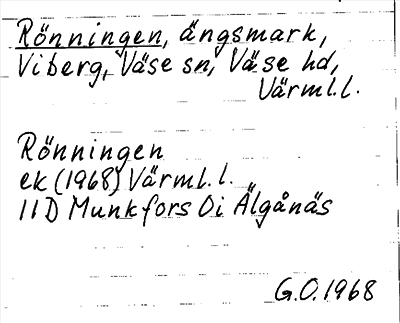 Rönningen, ängsmark,
Viberg, Väse sn, Väse hd,
Värml.l.
Rönningen
ek (1968) Värml. l.
11D Munkfors 0i Älgånäs
G.O. 1968